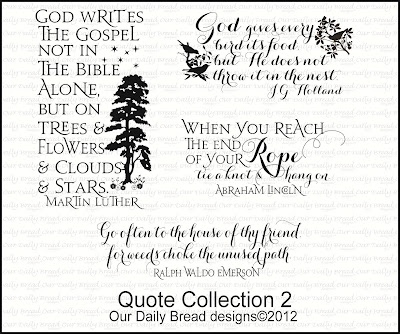 God writes
the Gospel
not in
the Bible
alone,
but on
trees &
flowers
& clouds
& stars.
Martin Luther
God gives every
bird its food
but He does not
throw it in the nest.
J.G Holland
When you reach
the end
of your Rope
tie a knot & hang on
Abraham Lincoln
Go often to the house of thy friend
for weeds choke the unused path
Ralph Waldo Emerson
Quote Collection 2
Our Daily Bread designs©2012